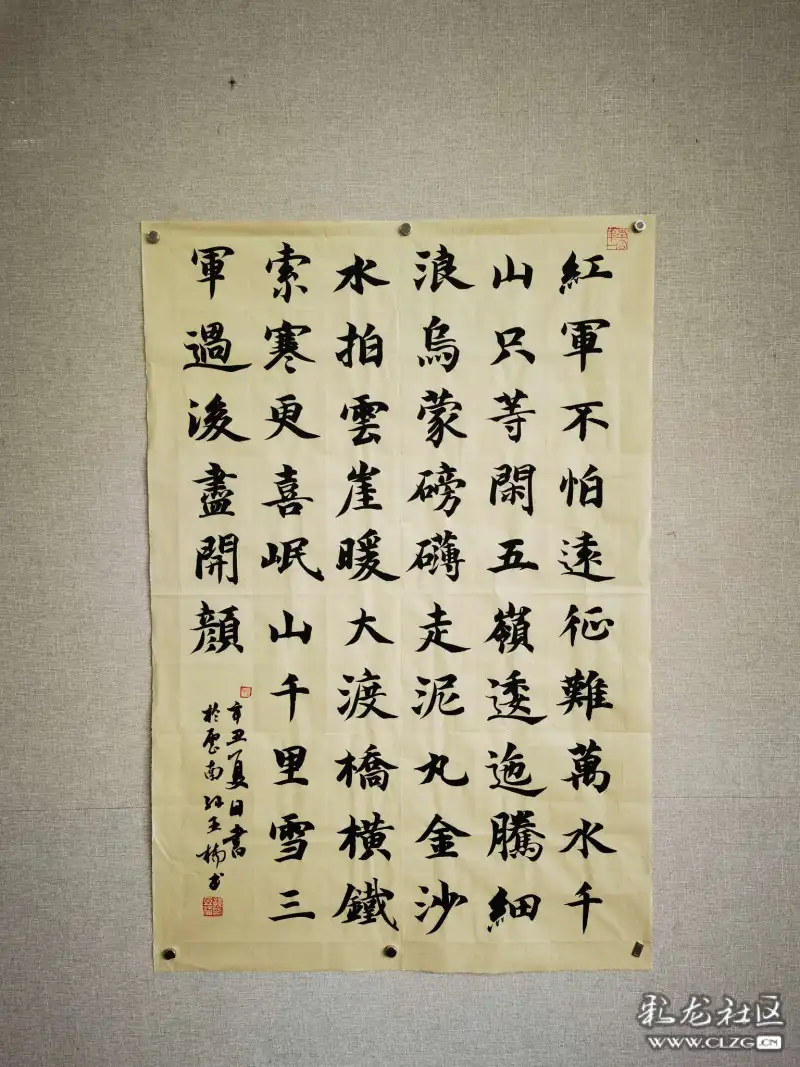 紅軍不怕遠征難萬水千
山只等閑五嶺逶迤騰細
浪烏蒙磅礴走泥丸金沙
水拍雲崖暖大渡橋橫鐵
索寒更喜岷山千里雪三
軍過後盡開顏
辛丑夏日書
於雲南
彩龙社区
WWW.CLZG.CN